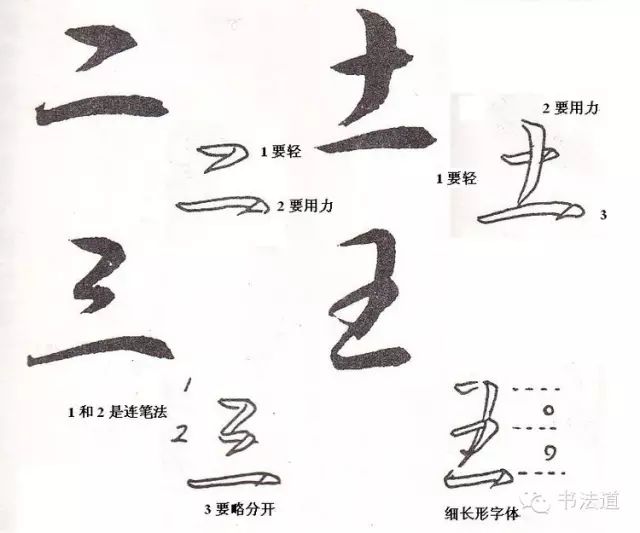 二
土
1要轻
2要用力
2要用力
1要轻
3
三
王
1和2是连笔法
1
2
3要略分开
细长形字体
书法道